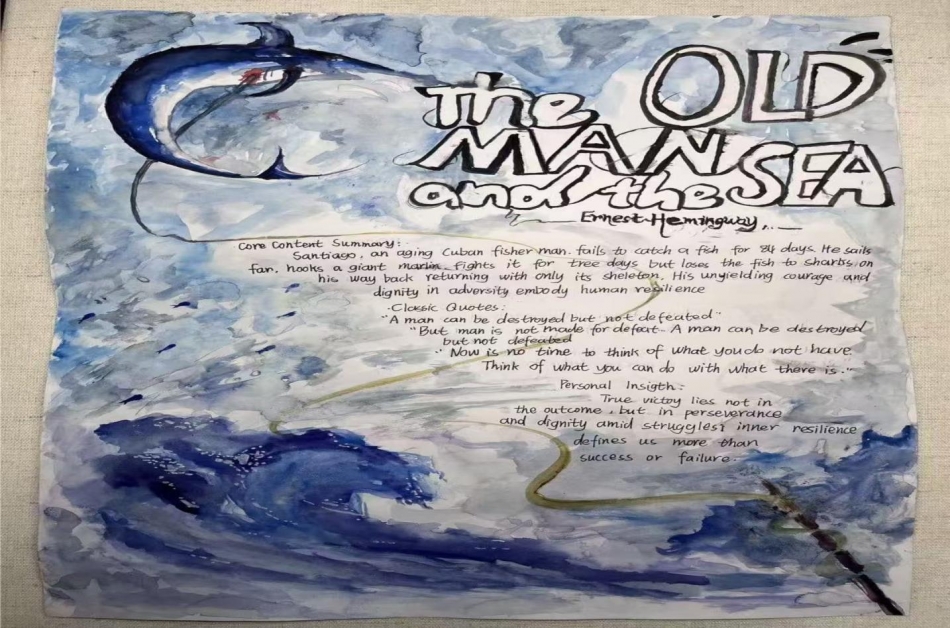 The OLD
MAN SEA
and the
Ernest Hemingway
Core Content Summary:
Santiago, an aging Cuban fisherman. fails to catch a fish for 84 days. He sails
far, hooks a giant marlin. fights it for tree days but loses the fish to sharks on
his way back returning with only its skeleton. His unyielding courage and
dignity in adversity embody human resilience
·Classic Quotes:
"A man can be destroyed but not defeated"
"But man is not made for defeat. A man can be destroyed
but not defeated
"Now is no time to think of what you do not have
Think of what you can do with what there is."
Personal Insigth:
True victoy lies not in
the outcome, but in perseverance
and dignity amid struggles; inner resilience
defines us more than
success or failure.